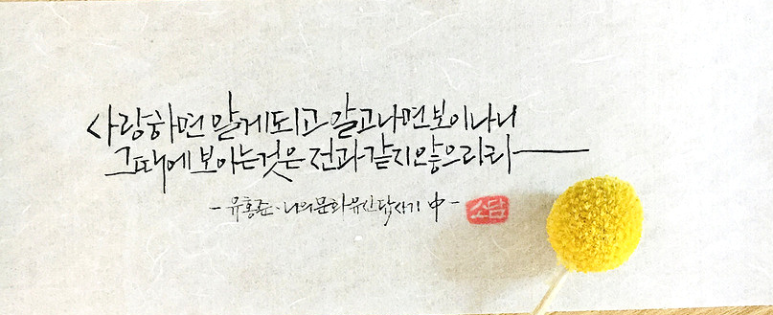 사랑하면 알게되고 알고나면 보이나니
그때에 보이는것은 전과같지않으리라
- 유홍준·나의문화유산답사기 中 -
소담